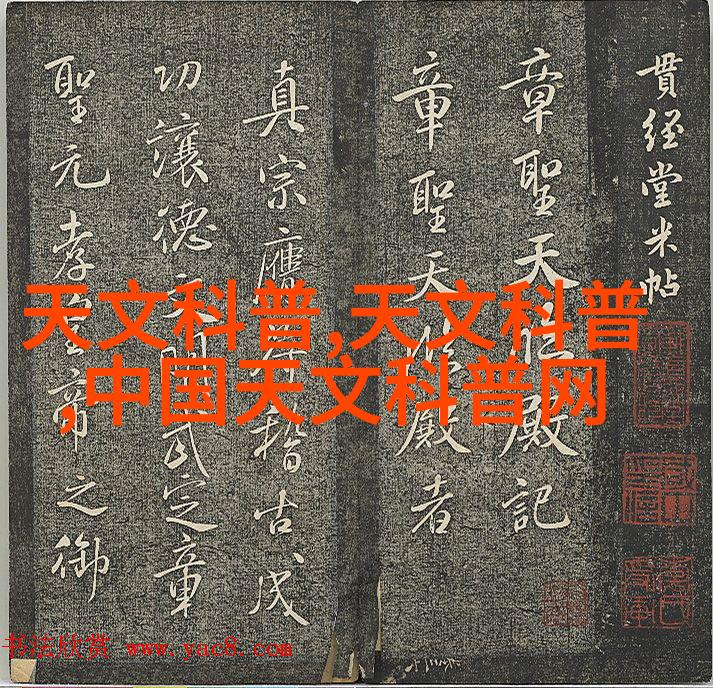 貫經堂米帖
章聖天臨殿記
章聖天臨殿者
真宗膺符稽古成
功讓德文明武定章
聖元孝皇帝之御
天文科普,天文科普
,中国天文科普网
书法欣赏 www.yac8.com